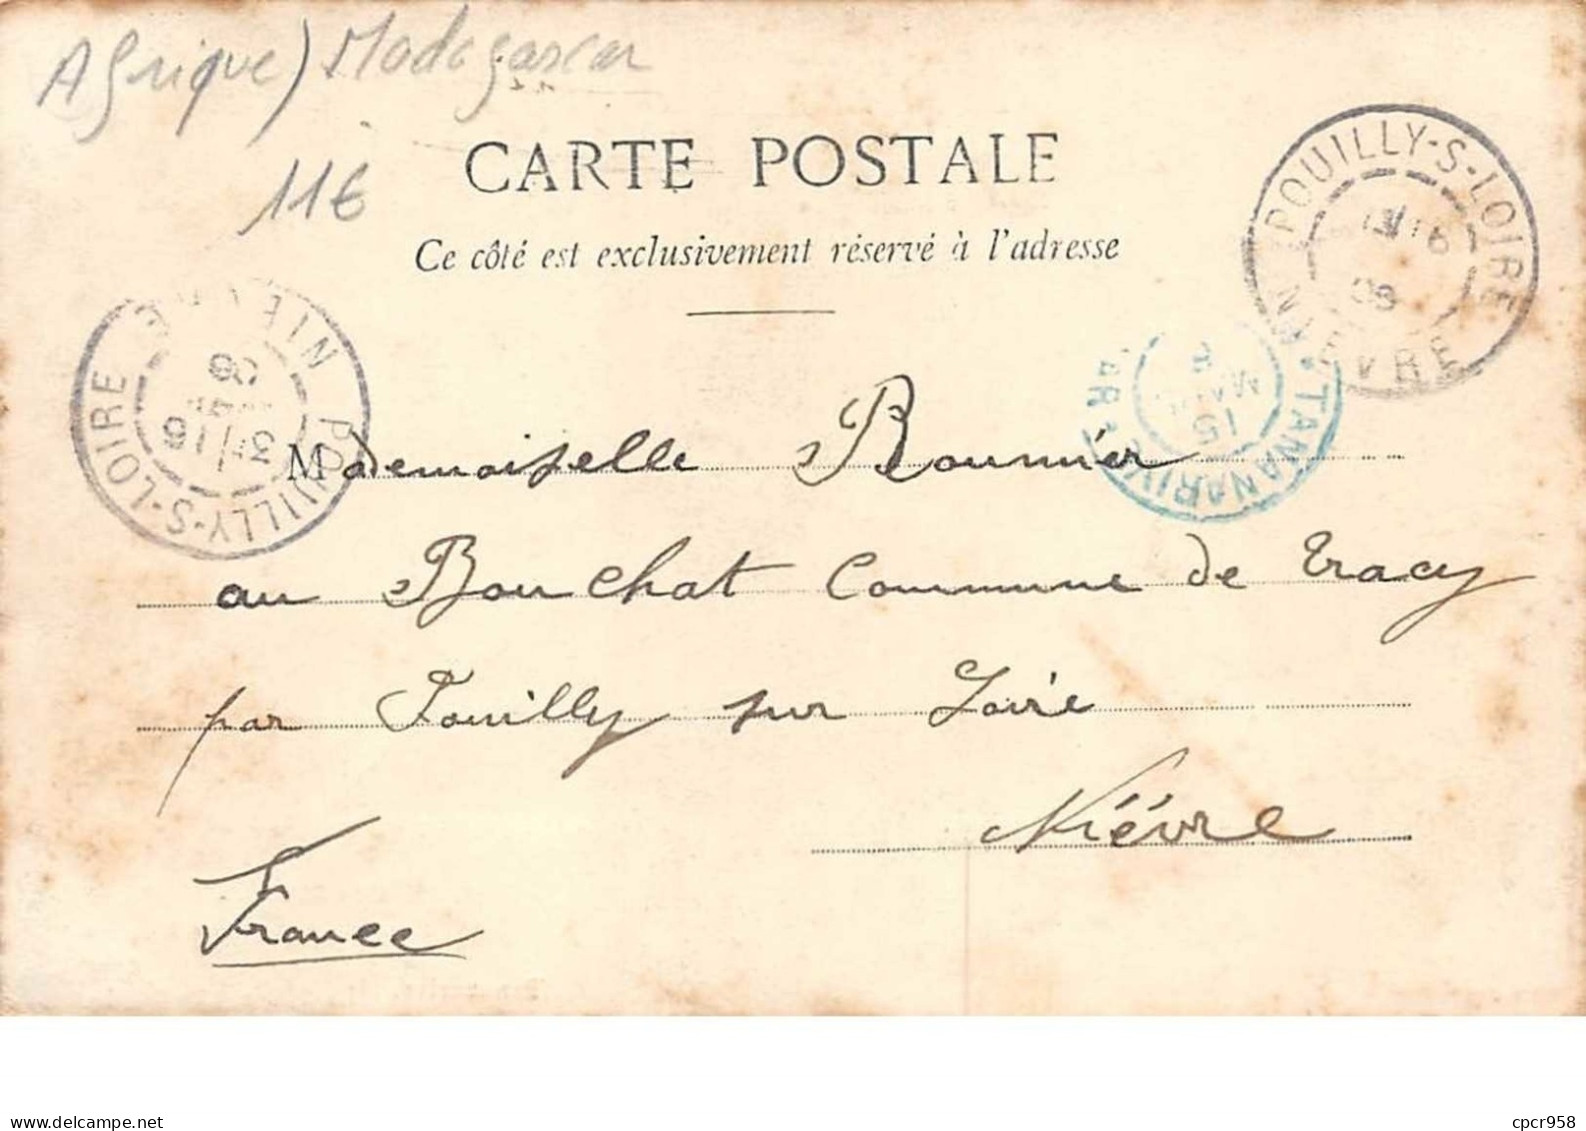 Afrique) Madagascar
11€
CARTE POSTALE
Ce côté est exclusivement réservé à l'adresse
POUILLY-S-LOIRE
NIÈVRE
16
06
POUILLY-S-LOIRE
NIÈVRE
16
06
TANANARIVE
15
MARS
Mademoiselle Roumier
au Bouchat Commune de Tracy
par Pouilly sur Loire
Nièvre
France
cpcr958